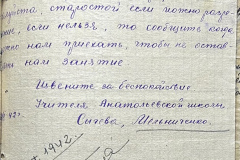 старостой если можно разре-
шие, если нельзя, то сообщить когда
нам приехать, чтобы не остав
нам занятие.
Извените за беспокойствие
Учителя Анатольевской школы
Сычева, Мельниченко.
1942